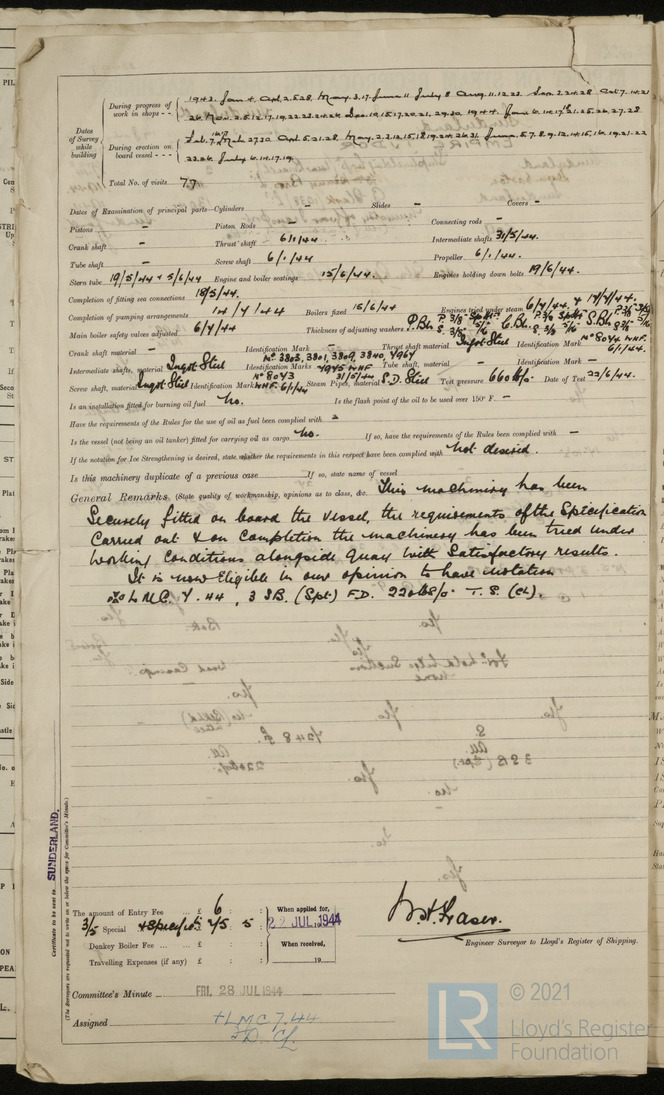 Dates of Survey while building
During progress of work in shops - - 1943. Jan 4. Apl. 2.5.28. May 3.17. June 11 July 8 Aug. 11.12.23 Sep. 2.24.28 Oct 7.14.21
26. Nov. 2.5.12.17.19.22.23.24.26 Dec. 10.15.17.20.21.29.30 1944. Jan 6.10.17.18.21.25.26.27.28
During erection on board vessel - - - Feb. 7. Mch 27.30 Apl 5.21.28 May 2.3.12.15.18.19.24.26.31 June 5.7.8.9.12.14.15.16.19.21.22
23.26. July 6.14.17.19.
Total No. of visits 77
Dates of Examination of principal parts—Cylinders - Slides - Covers -
Pistons - Piston Rods - Connecting rods -
Crank shaft - Thrust shaft 6/1/44 Intermediate shafts 31/5/44.
Tube shaft - Screw shaft 6/1/44 Propeller 6/1/44.
Stern tube 19/5/44 & 5/6/44 Engine and boiler seatings 15/6/44. Engines holding down bolts 19/6/44.
Completion of fitting sea connections 18/5/44.
Completion of pumping arrangements 14/7/44 Boilers fixed 15/6/44 Engines tried under steam 6/7/44. & 14/7/44.
Main boiler safety valves adjusted 6/7/44 Thickness of adjusting washers P. Blr. C. Blr. S. Blr.
Crank shaft material - Identification Mark - Thrust shaft material Ingot Steel Identification Mark No 8044 WHF. 6/1/44.
Intermediate shafts, material Ingot Steel Identification Marks No 3803, 3801, 3809, 3840, 4964 4945 WHF 31/5/44 Tube shaft, material - Identification Mark -
Screw shaft, material Ingot Steel Identification Mark No 8043 WHF. 6/1/44 Steam Pipes, material S.D. Steel Test pressure 660 lbs/□" Date of Test 22/6/44.
Is an installation fitted for burning oil fuel No. Is the flash point of the oil to be used over 150° F. -
Have the requirements of the Rules for the use of oil as fuel been complied with -
Is the vessel (not being an oil tanker) fitted for carrying oil as cargo No. If so, have the requirements of the Rules been complied with -
If the notation for Ice Strengthening is desired, state whether the requirements in this respect have been complied with Not desired.
Is this machinery duplicate of a previous case - If so, state name of vessel
General Remarks (State quality of workmanship, opinions as to class, &c. This machinery has been
Securely fitted on board the vessel, the requirements of the Specification
Carried out & on Completion the machinery has been tried under
Working Conditions alongside quay with Satisfactory results.
It is now Eligible in our opinion to have notation
LMC. 7.44, 3 SB. (Spt) FD. 220 lbs/□" T.S. (CL).
Certificate to be sent to SUNDERLAND.
(The Surveyors are requested not to write on or below the space for Committee's Minute.)
The amount of Entry Fee ... £ 6 : : When applied for,
3/5 Special +Specifictn £ 45 : 5 : 22 JUL 1944
Donkey Boiler Fee ... ... £ : : When received,
Travelling Expenses (if any) £ : : 19
W.H. Fraser.
Engineer Surveyor to Lloyd's Register of Shipping.
Committee's Minute FRI. 28 JUL 1944
Assigned +LMC 7.44
FD. CL
LR
© 2021
Lloyd's Register
Foundation